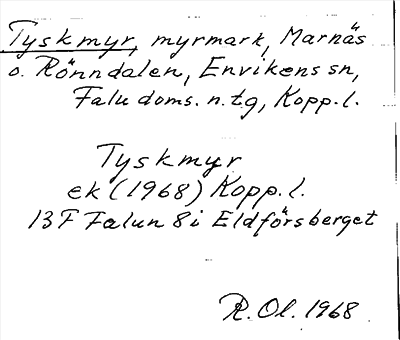 Tyskmyr, myrmark, Marnäs
o. Rönndalen, Envikens sn,
Falu doms. n. tg, Kopp. l.
Tyskmyr
ek (1968) Kopp. l.
13F Falun 8i Eldförsberget
R. Ol. 1968